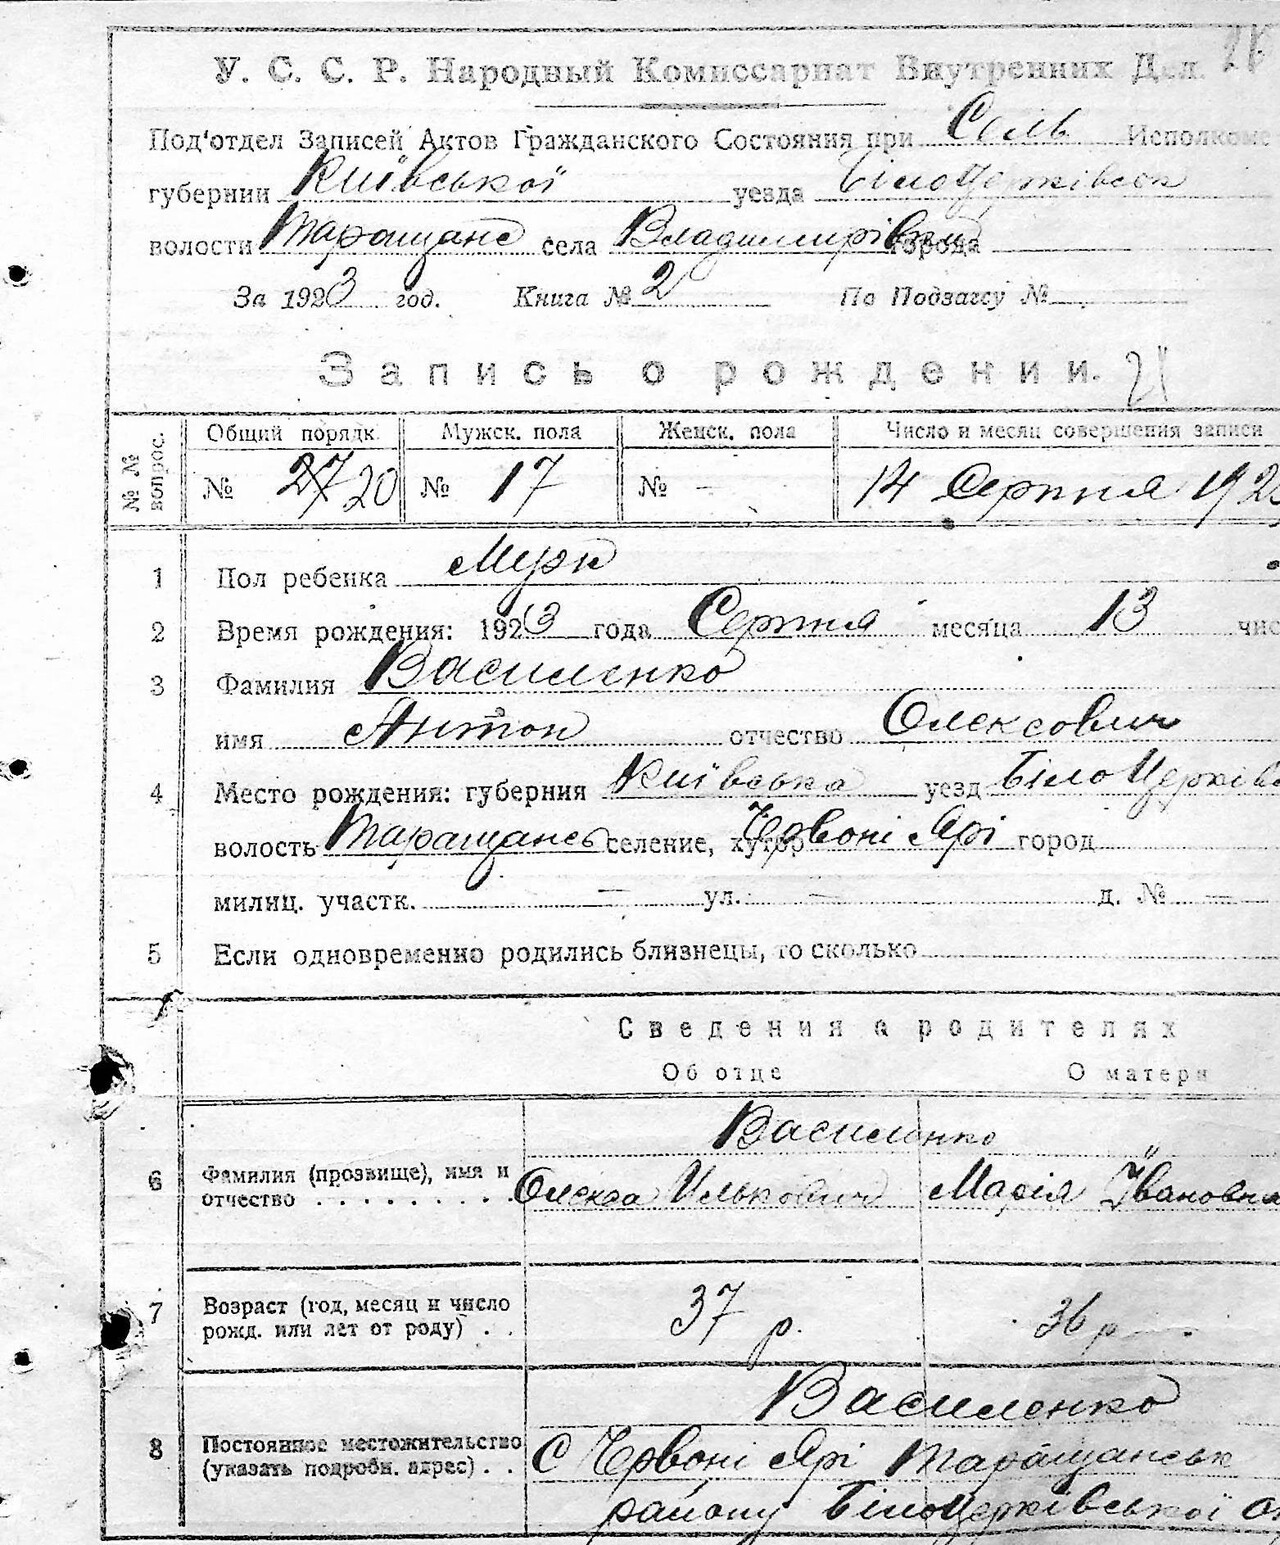 У. С. С. Р. Народный Комиссариат Внутренних Дел. 28
Под'отдел Записей Актов Гражданского Состояния при Сель Исполкоме
губернии Київської уезда БілоЦерківськ
волости Таращанс села Владимирівки города
За 1923 год. Книга № 2 По Подзагсу №
Запись о рождении. 21
№ № вопрос. Общий порядк. Мужск. пола Женск. пола Число и месяц совершения записи
№ 27 20 № 17 № - 14 Серпня 192
1 Пол ребенка Мужч
2 Время рождения: 1923 года Серпня месяца 13 чис
3 Фамилия Василенко
имя Антон отчество Олексович
4 Место рождения: губерния Київська уезд БілоЦерків
волость Таращансь селение, хутор Червоні Ярі город
милиц. участк. — ул. — д. № —
5 Если одновременно родились близнецы, то сколько
Сведения о родителях
Об отце О матери
Василенко
6 Фамилия (прозвище), имя и отчество . . . . . . . . Олекса Илькович Марія Івановна
7 Возраст (год, месяц и число рожд. или лет от роду) . . 37 р. 36 р
Василенко
8 Постоянное местожительство (указать подробн. адрес) . . С Червоні Ярі Таращанськ
району БілоЦерківської Ок